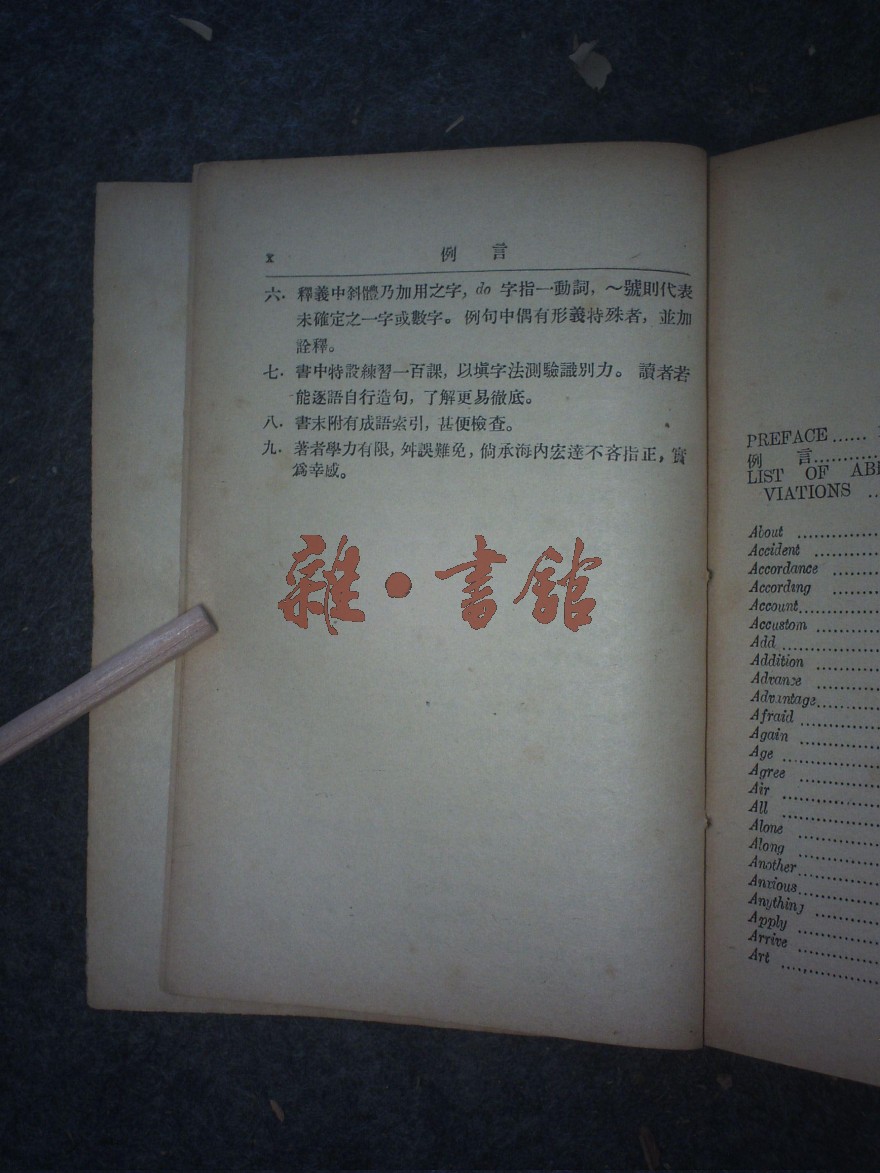 x
例 言
六. 釋義中斜體乃加用之字, do 字指一動詞, ～號則代表
未確定之一字或數字。 例句中偶有形義特殊者, 並加
詮釋。
七. 書中特設練習一百課, 以塡字法測驗識別力。 讀者若
能逐語自行造句, 了解更易徹底。
八. 書末附有成語索引, 甚便檢查。
九. 著者學力有限, 舛誤難免, 倘承海內宏達不吝指正, 實
爲幸感。
雜·書館
PREFACE ......
例 言............
LIST OF ABB
VIATIONS ..
About ............
Accident .........
Accordance ......
According ......
Account............
Accustom .........
Add ...............
Addition .........
Advance .........
Advantage.........
Afraid ............
Again ............
Age ...............
Agree ............
Air ...............
All ...............
Alone ............
Along ............
Another............
Anxious............
Anything .........
Apply ............
Arrive ............
Art ...............